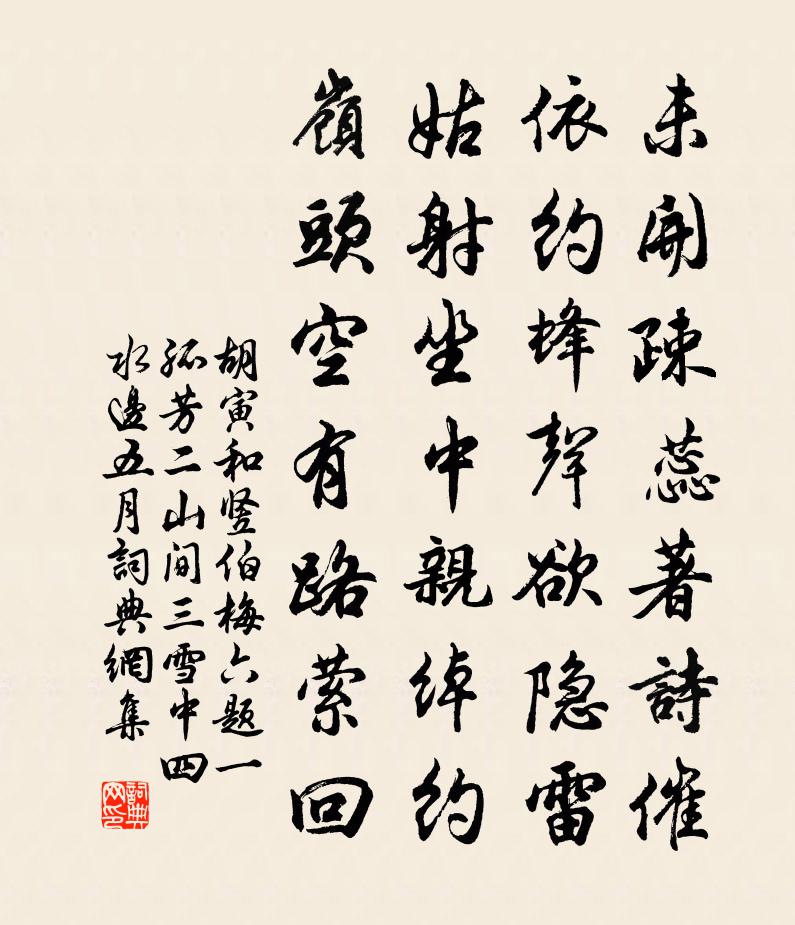 未開疎蕊著詩催
依約蜂聲欲隐雷
姑射坐中親綽約
嶺頭空有路萦回
胡寅和竖伯梅六题一
孤芳二山间三雪中四
水邊五月詞典網集
詞典网印